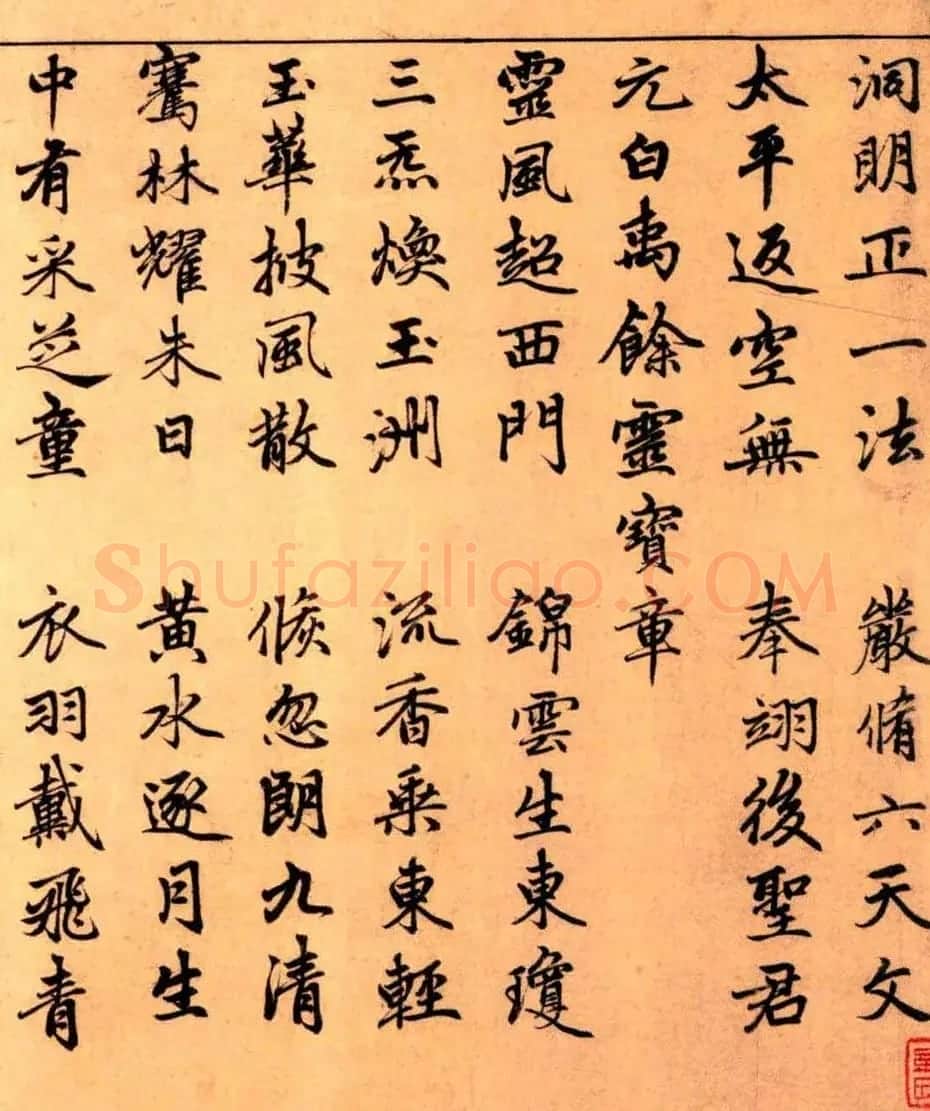 洞明正一法 嚴脩六天文
太平返空無 奉翊後聖君
元白禹餘靈寶章
靈風超西門 錦雲生東瓊
三炁煥玉洲 流香乘東輕
玉華披風散 倐忽朗九清
騫林耀朱日 黃水逐月生
中有采芝童 衣羽戴飛青
Shufaziliao.COM